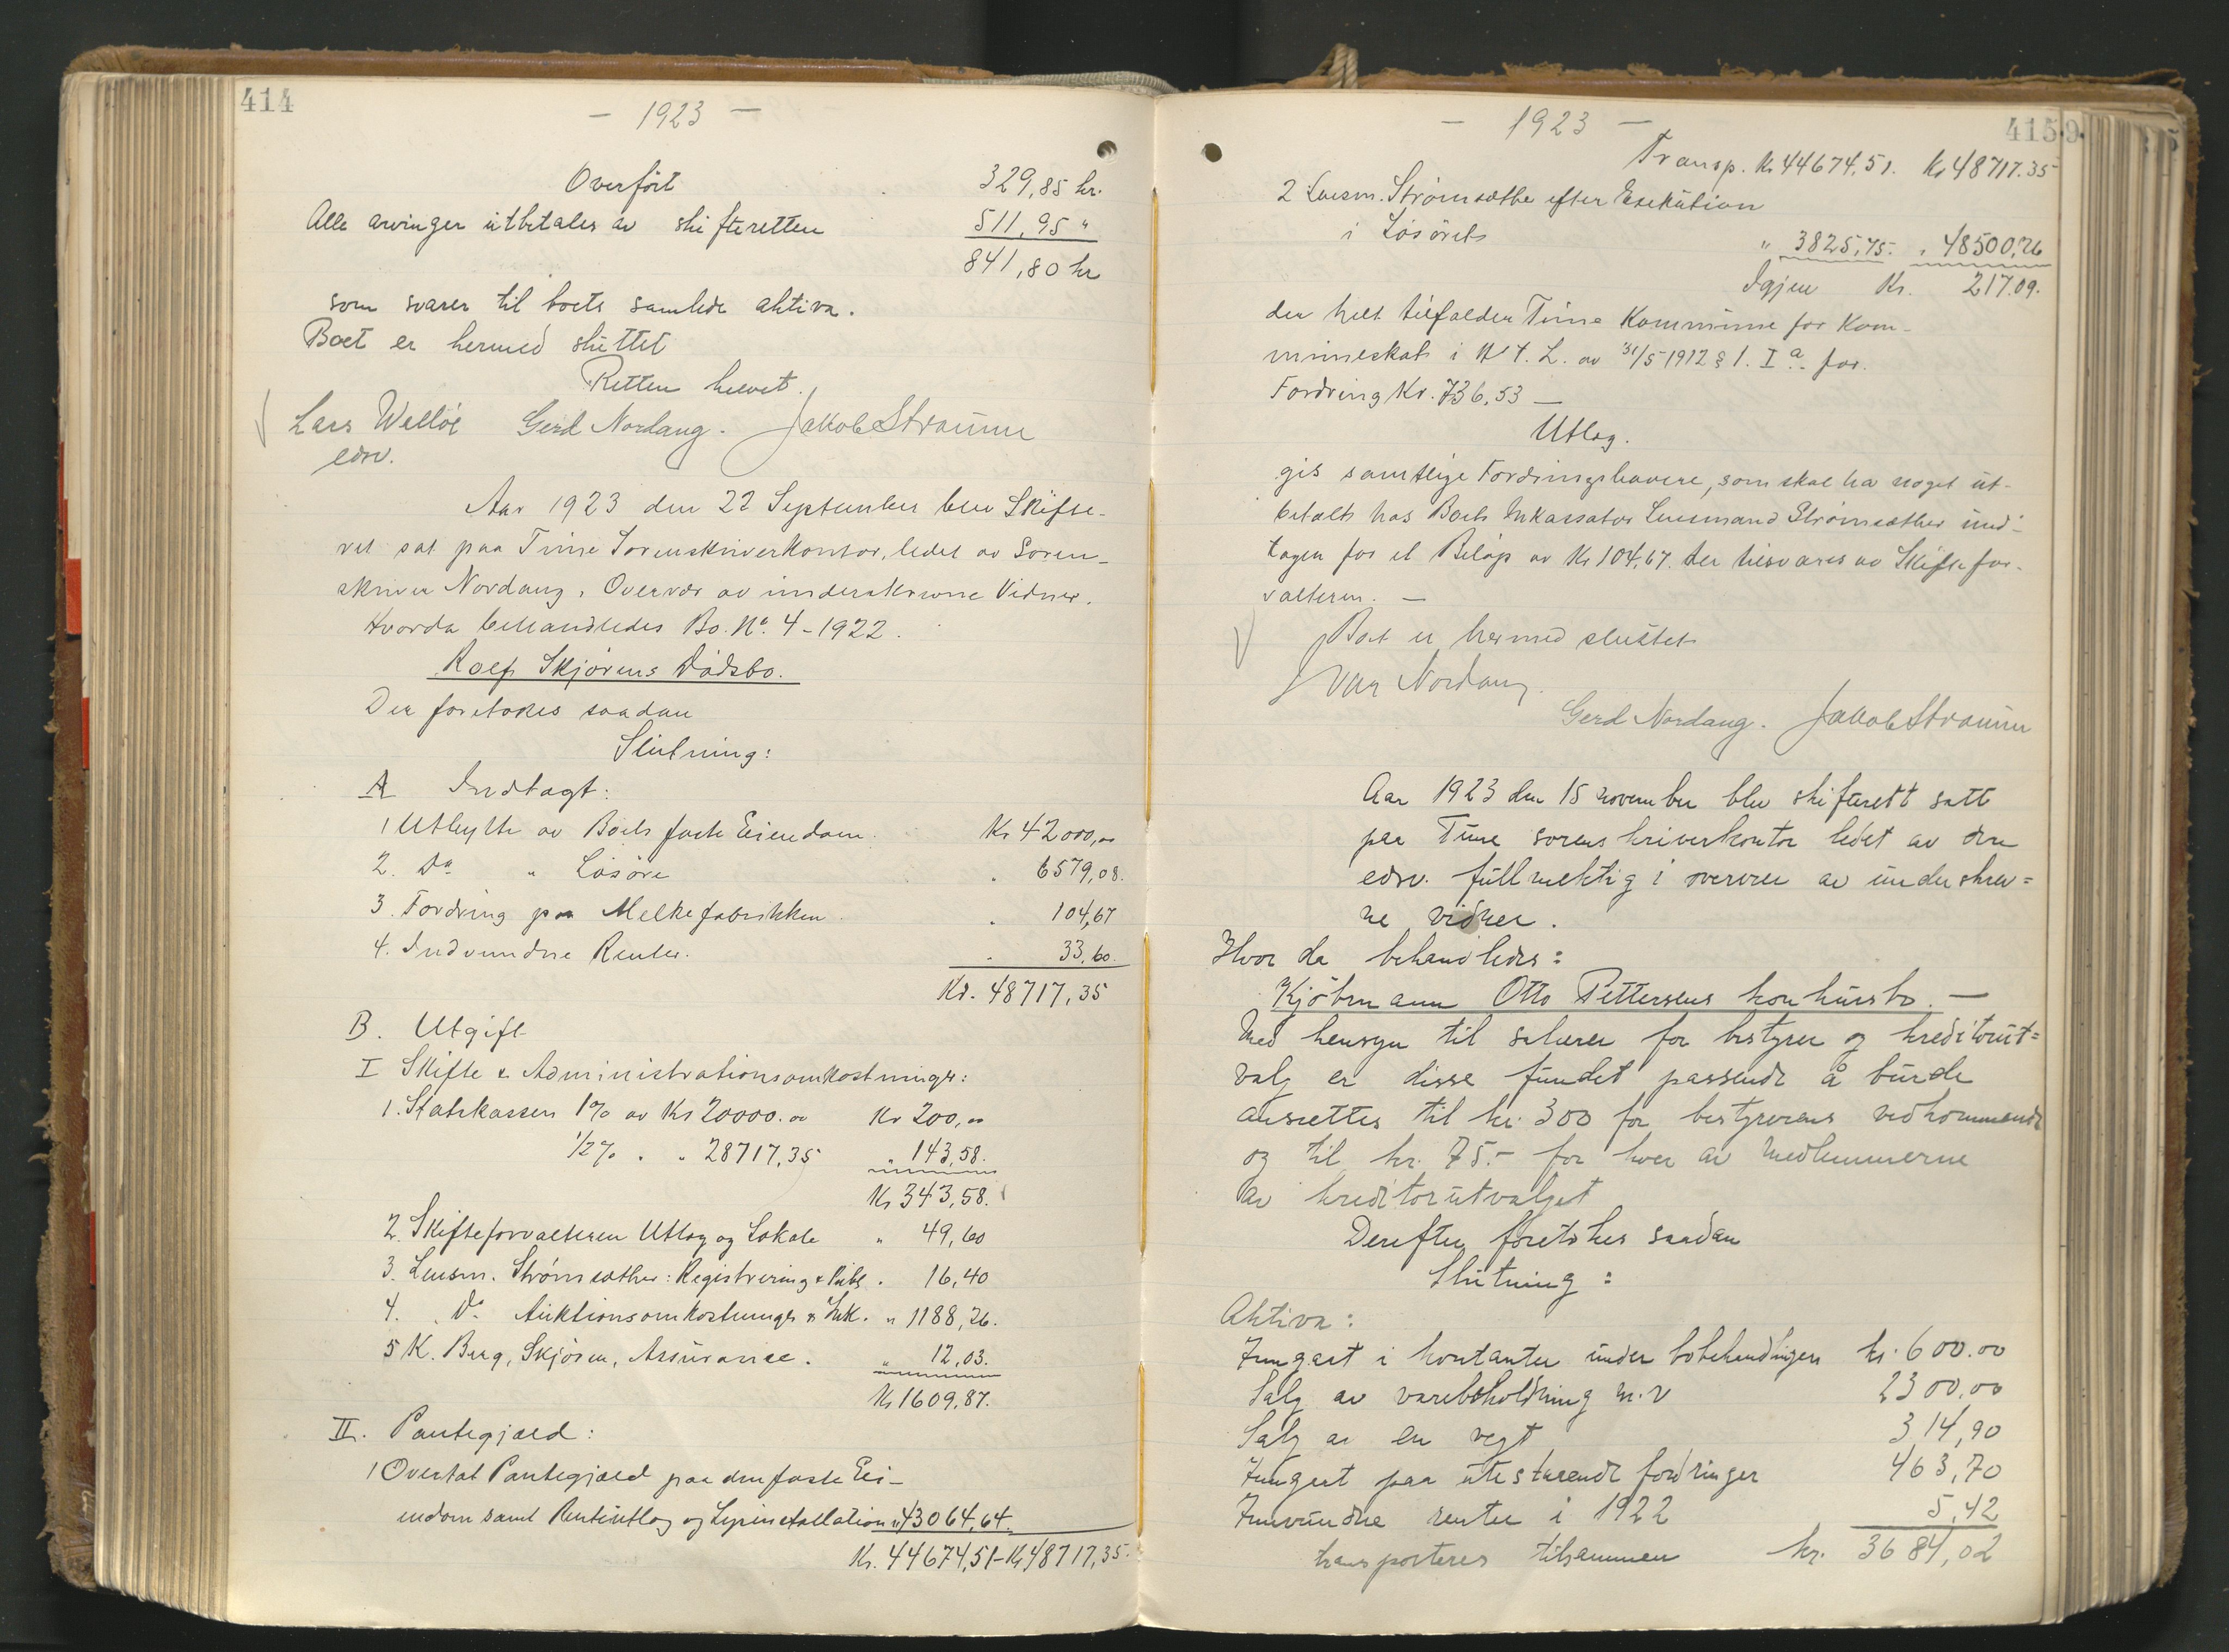 414
- 1923 -
Overført 329,85 kr.
Alle arvinger utbetales av skifteretten 511,95 "
841,80 kr
som svarer til boets samlede aktiva.
Boet er hermed sluttet
Retten hevet.
Lars Welløe Gerd Nordang. Jakob Straume
edsv.
Aar 1923 den 22 September blev Skifte-
ret sat paa Time Sorenskriverkontor, ledet av Soren-
skriver Nordang, Overvær av underskrevne Vidner.
Hvorda behandledes Bo. No. 4-1922.
Rolf Skjørens Dødsbo.
Der foretokes saadan
Slutning:
A Indtagt:
1 Utbytte av Boets faste Eiendom. Kr 42000,00
2. Do " Løsøre " 6579,08.
3. Fordring paa Melkefabrikken. " 104,67
4. Indvundne Renter. " 33,60.
Kr. 48717,35
B. Utgift
I Skifte & Administrationsomkostninger:
1. Statskassen 1% av Kr 20000.00 Kr 200,00
1/2% " " 28717,35 " 143,58.
Kr 343,58.
2. Skifteforvalteren Utlæg og Lokale " 49,60
3. Lensm. Strømsæther: Registrering & Publ. " 16,40
4. Do Auktionsomkostninger & Ink. " 1188,26.
5 K. Berg, Skjøren, Assurance. " 12,03.
Kr 1609,87.
II. Pantegjæld:
1 Overtat Pantegjæld paa den faste Ei-
endom samt Renteutlæg og Lysinstallation " 43064,64.
Kr. 44674,51 - Kr 48717,35.
415
- 1923 -
Transp. Kr 44674,51. Kr 48717.35
2 Lensm. Strømsæthe efter Exekution
i Løsørets " 3825,75. " 48500,26
Igjen Kr. 217.09.
der helt tilfalder Time Kommune for Kom-
muneskat i H. t. L. av 31/5 1912 § 1. Ia. for
Fordring Kr. 736,53 -
Utlæg.
gis samtlige Fordringshavere, som skal ha noget ut-
betalt hos Boets Inkassator Lensmand Strømsæther und-
tagen for et Beløp av Kr 104,67. der tilsvares av Skiftefor-
valteren. -
Boet er hermed sluttet
Ivar Nordang.
Gerd Nordang. Jakob Straume
Aar 1923 den 15 november blev skifterett satt
paa Time sorenskriverkontor ledet av den
edsv. fullmektig i overvær av underskrev=
ne vidner.
Hvor da behandledes:
Kjøbmann Otto Pettersens konkursbo. -
Med hensyn til salærer for bestyrer og kreditorut=
valg er disse fundet passende å burde
ansættes til kr. 300 for bestyrerens vedkommende
og til kr. 75.- for hver av medlemmerne
av kreditorutvalget
Derefter foretokes saadan
Slutning:
Aktiva:
Inngaat i kontanter under bobehandlingen kr. 600.00
Salg av varebeholdning m.v 2300.00
Salg av en vegt 314,90
Inngaat paa utestaaende fordringer 463,70
Innvundne renter i 1922 5,42
transporteres tilsammen kr. 3684,02